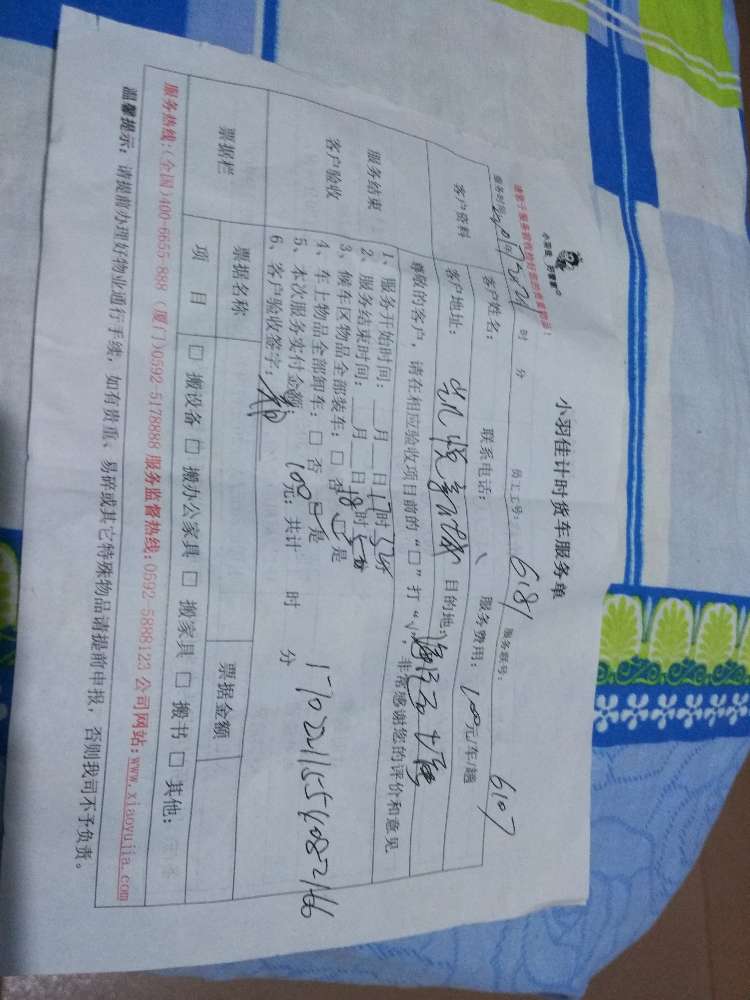 小羽佳 好管家
小羽佳计时货车服务单
服务时间: 时 分 员工工号: 6181 服务班号: 6107
客户资料
客户姓名: 联系电话: 服务费用: 100元/车/趟
客户地址: 目的地:
尊敬的客户,请在相应验收项目前的“□”打“√”,非常感谢您的评价和意见
服务结束
客户验收
1、服务开始时间: 月 日17时
2、服务结束时间: 月 日18时
3、候车区物品全部装车:□ 否 □ 是
4、车上物品全部卸车:□ 否 □ 是
5、本次服务实付金额: 100元;共计 时 分
6、客户验收签字:
票据栏 票据名称 票据金额
项 目 □ 搬设备 □ 搬办公家具 □ 搬家具 □ 搬书 □ 其他:
服务热线:(全国)400-6655-888 (厦门)0592-5178888 服务监督热线:0592-5888123 公司网站:www.xiaoyujia.com
温馨提示:请提前办理好物业通行手续,如有贵重、易碎或其它特殊物品请提前申报,否则我司不予负责。